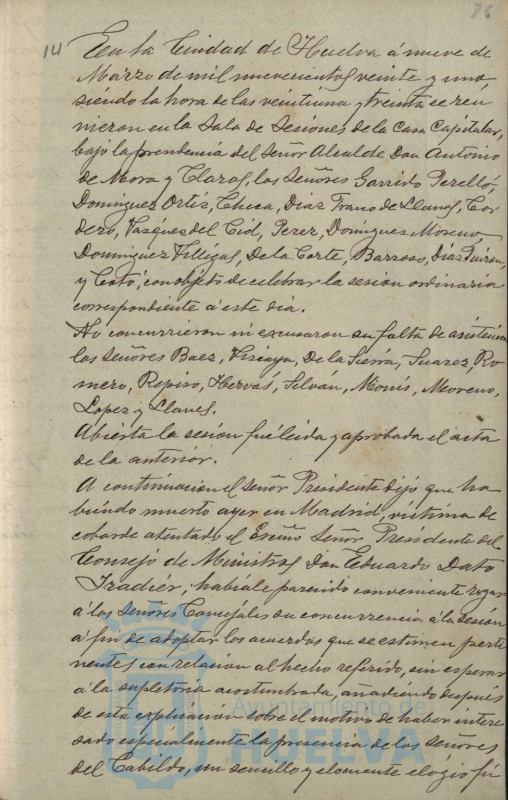 76
14 En la Ciudad de Huelva á nueve de
Marzo de mil novecientos veinte y uno,
siendo la hora de las veintiuna y treinta se reu
nieron en la Sala de Sesiones de la Casa Capitular,
bajo la presidencia del Señor Alcalde Don Antonio
de Mora y Claros, los Señores Garrido Perelló,
Dominguez Ortíz, Checa, Diaz Franco de Llanes, Cor
dero, Vazquez del Cid, Perez, Dominguez Moreno,
Dominguez Villegas, De la Corte, Barroso, Díaz
y Coto, con objeto de celebrar la sesion ordinaria
correspondiente á este dia.
No concurrieron ni excusaron su falta de asistencia
los Señores Baez, Vizcaya, De la Sierra, Suarez, Ro
mero, Repiso, Hervás, Selván, Monis, Moreno,
Lopez y Llanes.
Abierta la sesión fué leida y aprobada el acta
de la anterior.
A continuacion el Señor Presidente dijo que ha
biendo muerto ayer en Madrid, víctima de
cobarde atentado el Excmo Señor Presidente del
Consejo de Ministros Don Eduardo Dato
Iradiér, habíale parecido conveniente rogar
á los Señores Concejales su concurrencia á la sesión
a fin de adoptar los acuerdos que se estimen perti
nentes con relacion al hecho referido, sin esperar
á la supletoria acostumbrada, añadiendo después
de esta explicación sobre el motivo de haber intere
sado especialmente la presencia de los Señores
del Cabildo, un sencillo y elocuente elógio fú
Ayuntamiento de
HUELVA